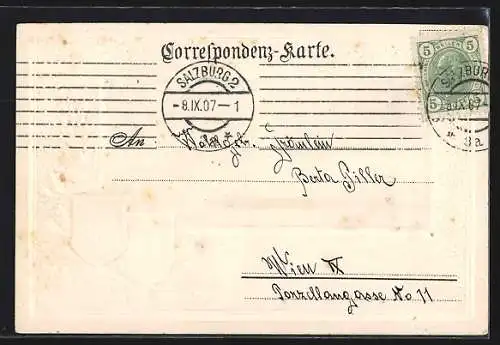 Correspondenz-Karte.
SALZBURG 2
- 8.IX.07 - 1
5 5
5
SALZBURG
IX.07
3a
An Fräulein
Berta Piller
Wien IX
Porzellangasse No 11